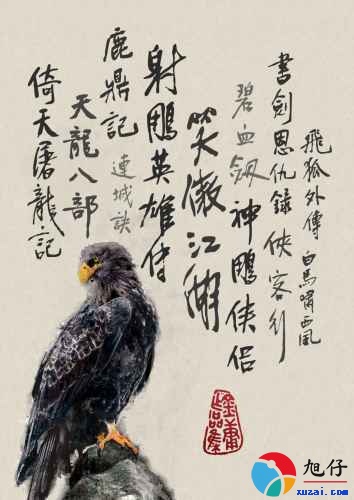 飛狐外傳
白馬嘯西風
書劍恩仇錄
俠客行
碧血劍
神鵰俠侶
笑傲江湖
射鵰英雄傳
鹿鼎記
連城訣
天龍八部
倚天屠龍記
金庸作品集
旭仔
xuzai.com